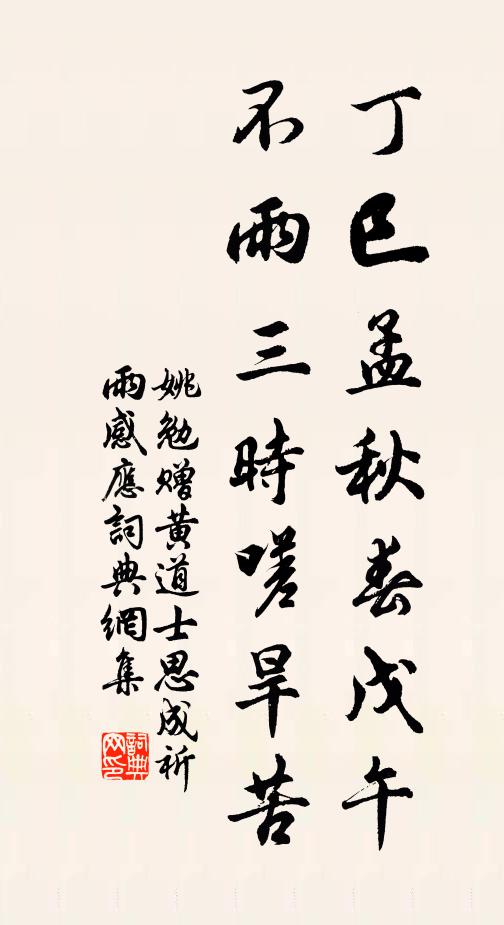 丁巳孟秋春戊午
不雨三時嗟旱苦
姚勉贈黄道士思成祈
雨感應詞典網集
詞典网印